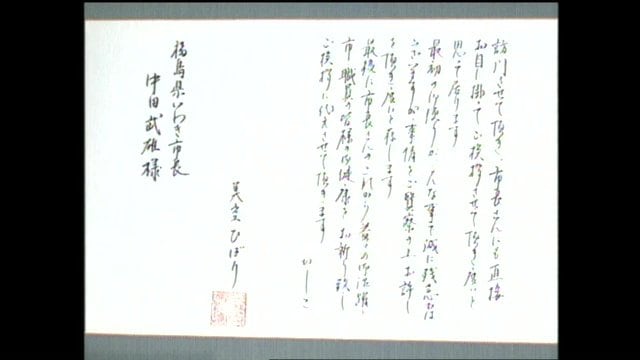 訪問させて頂き、市長さんにも直接
お目に掛ってご挨拶させて頂き度いと
思って居ります
最初のお便りが、こんな事で誠に残念では
ございますが事情をご賢察の上お許し
を頂き度いと存じます
最後に市長さんのこれから益々の御活躍と
市職員の皆様の御健康をお祈り致し
ご挨拶に代えさせて頂きます
かしこ
美空ひばり
福島県いわき市長
中田武雄様